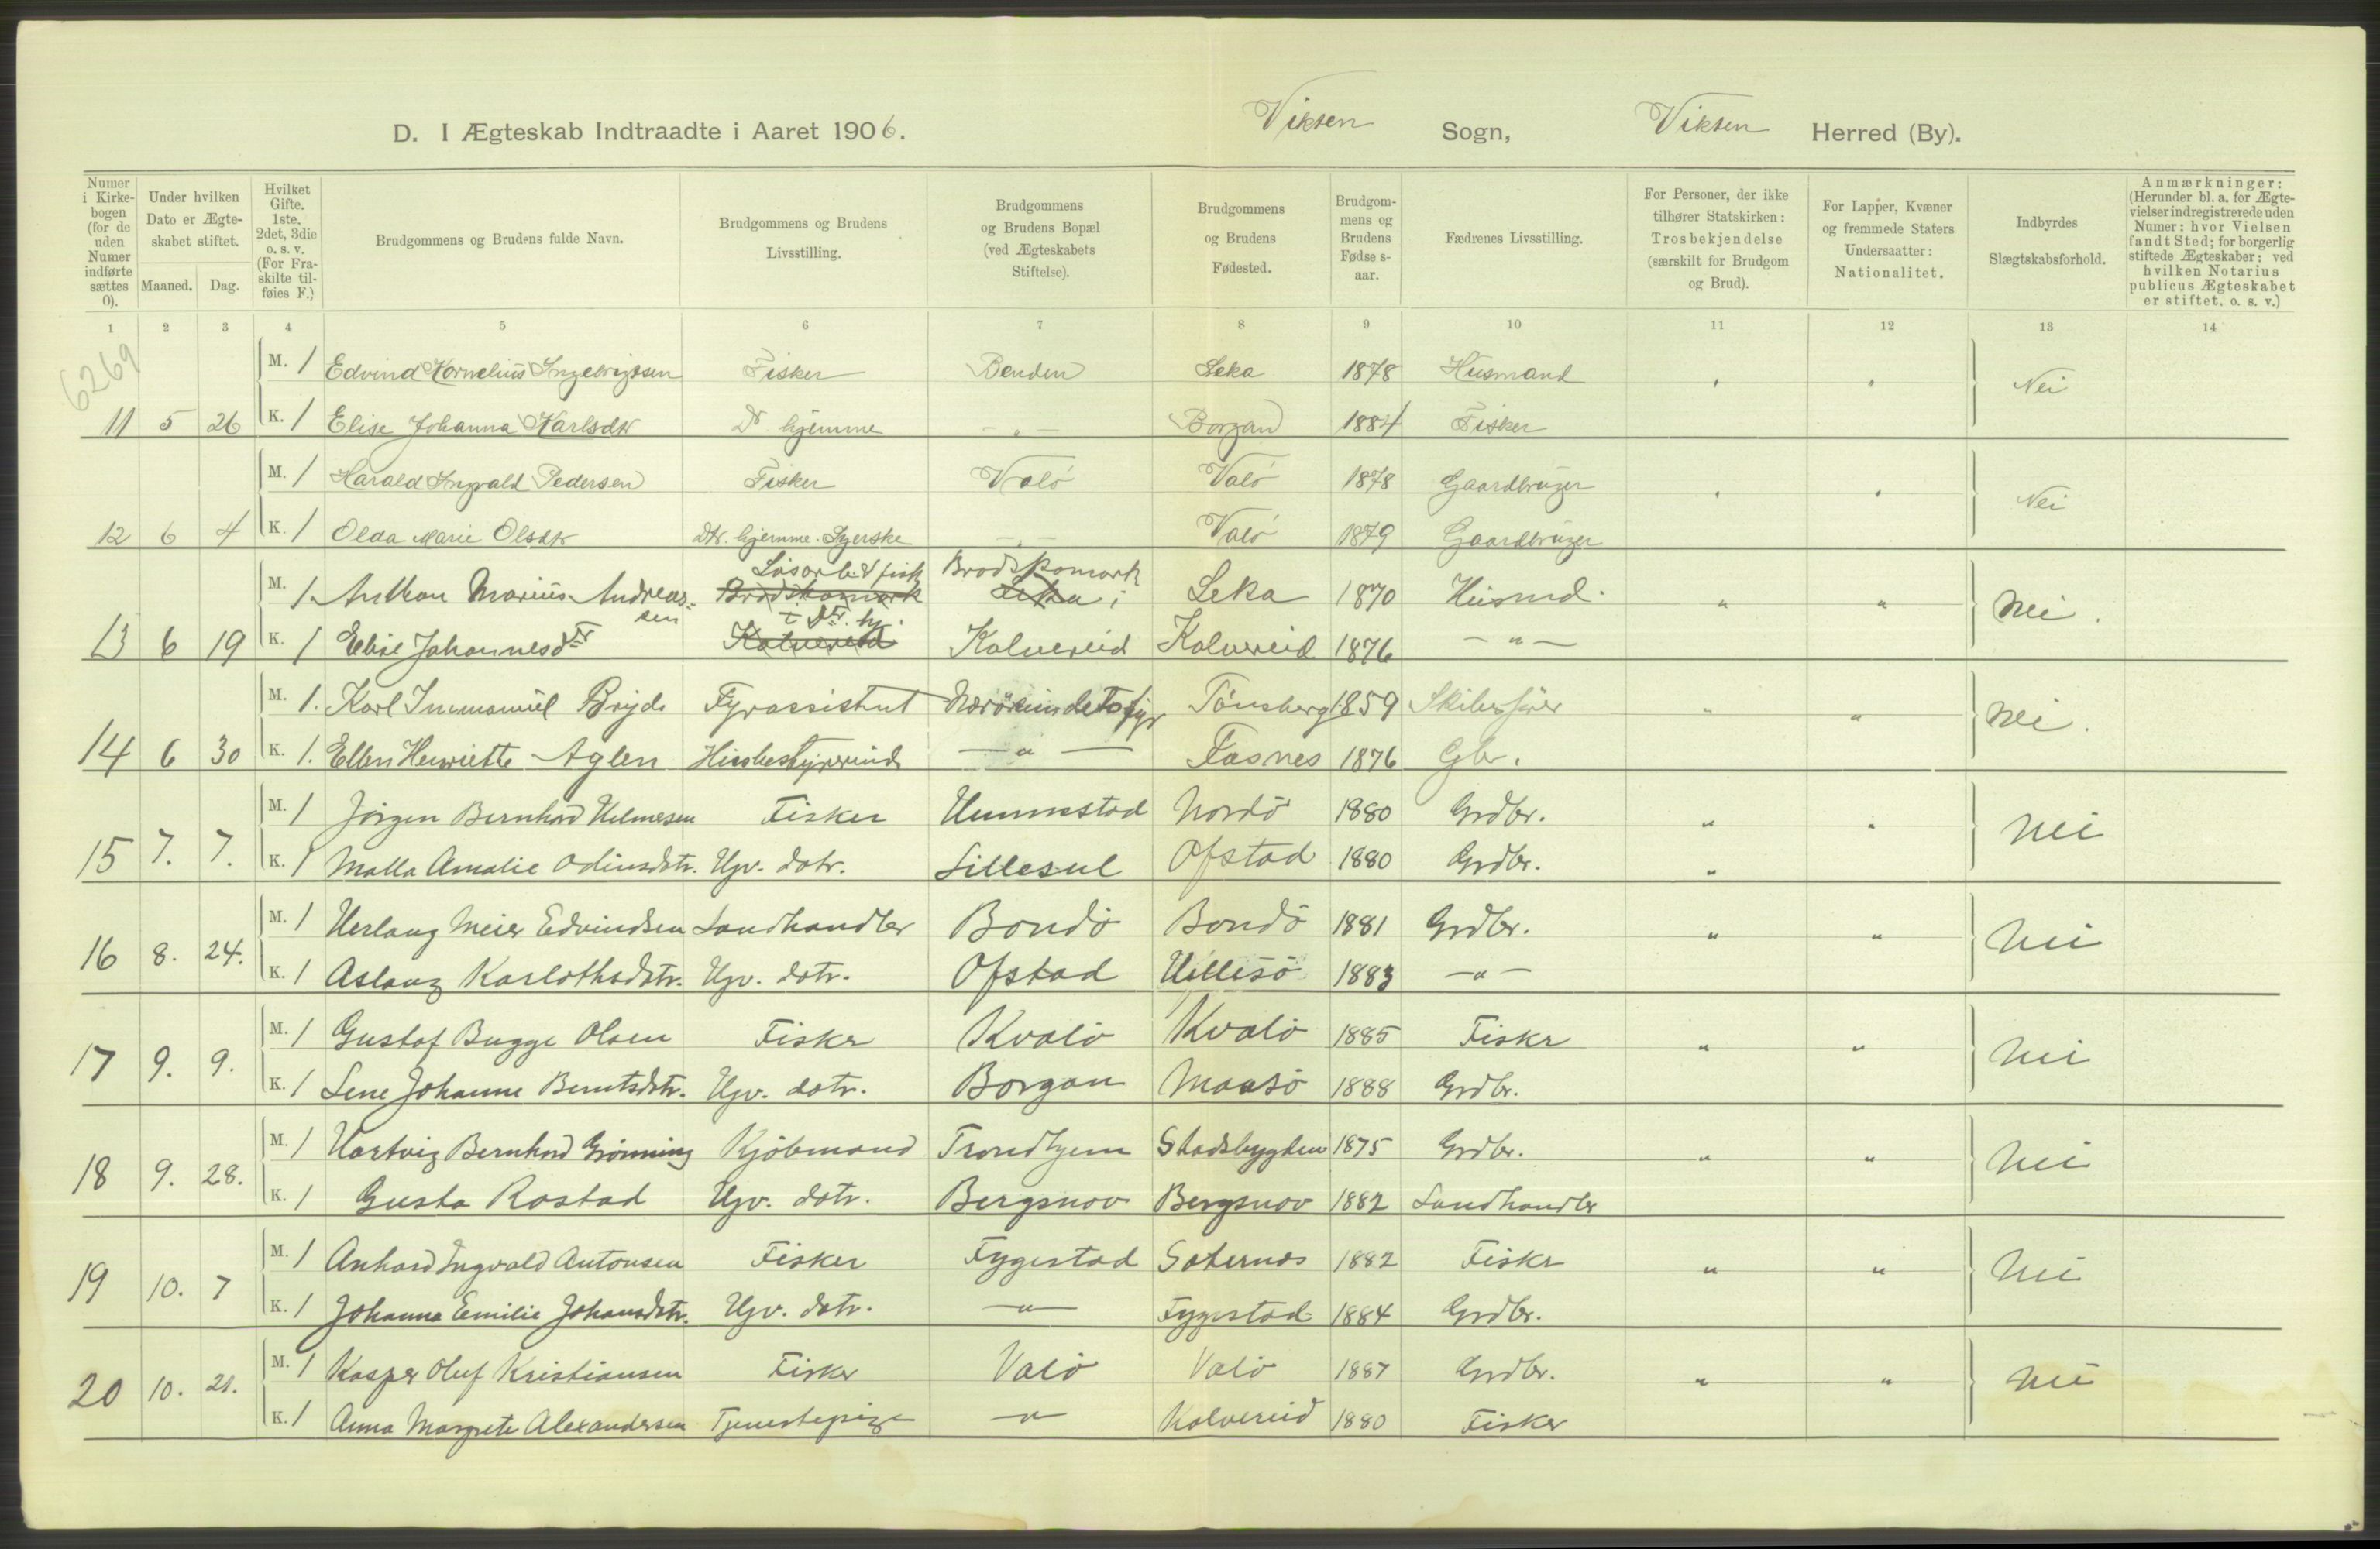 D. I Ægteskab Indtraadte i Aaret 1906. Vikten Sogn, Vikten Herred (By).
Numer i Kirkebogen (for de uden Numer indførte sættes 0). | Under hvilken Dato er Ægteskabet stiftet. Maaned. Dag. | Hvilket Gifte. 1ste, 2det, 3die o. s. v. (For Fraskilte tilføies F.) | Brudgommens og Brudens fulde Navn. | Brudgommens og Brudens Livsstilling. | Brudgommens og Brudens Bopæl (ved Ægteskabets Stiftelse). | Brudgommens og Brudens Fødested. | Brudgommens og Brudens Fødselsaar. | Fædrenes Livsstilling. | For Personer, der ikke tilhører Statskirken: Trosbekjendelse (særskilt for Brudgom og Brud). | For Lapper, Kvæner og fremmede Staters Undersaatter: Nationalitet. | Indbyrdes Slægtskabsforhold. | Anmærkninger: (Herunder bl. a. for Ægtevielser indregistrerede uden Numer: hvor Vielsen fandt Sted; for borgerlig stiftede Ægteskaber: ved hvilken Notarius publicus Ægteskabet er stiftet, o. s. v.)
1 2 3 4 5 6 7 8 9 10 11 12 13 14
6269
M. 1 Edvind Kornelius Ingebrigtsen Fisker Benden Leka 1878 Husmand " " Nei
11 5 26 K. 1 Elise Johanna Karlsdtr Dr hjemme - " - Borgan 1884 Fisker
M. 1 Harald Ingvald Pedersen Fisker Valö Valö 1878 Gaardbruger " " Nei
12 6 4 K. 1 Olda Marie Olsdtr Dtr. hjemme. Syerske - " - Valö 1879 Gaardbruger
Lösarb. & fisk Brodskomark
M. 1. Anthon Marius Andreas- Brodskomark Leka i Leka 1870 Husmd. " " Nei.
sen t Dtr. hj.
13 6 19 K. 1 Elise Johannesdtr Kalvereid Kalvereid Kalvereid 1876 - " -
M. 1. Karl Immanuel Bryde Fyrassistent Nærösundets fyr Tönsberg 1859 Skibsförer " " Nei.
14 6 30 K. 1. Ellen Henriette Aglen Husbestyrerinde - " - Fosnes 1876 Gbr.
M. 1 Jörgen Bernhard Helmesen Fisker Hunnestad Nordö 1880 Grdbr. " " Nei
15 7. 7. K. 1 Malla Amalie Odinsdtr. Hjv. datr. Lillesul Ofstad 1880 Grdbr. "
M. 1 Herlaug Meier Edvindsen Landhandler Bondö Bondö 1881 Grdbr. " " Nei
16 8. 24. K. 1 Aslaug Karlothsdatr. Hjv. datr. Ofstad Hillesö 1883 - " -
M. 1 Gustaf Bugge Olsen Fisker Kvalö Kvalö 1885 Fisker " " Nei
17 9. 9. K. 1 Lene Johanne Berntsdatr. Hjv. datr. Borgan Maasö 1888 Grdbr.
M. 1 Hartvig Bernhard Grönning Kjöbmand Trondhjem Stadsbygden 1875 Grdbr. " " Nei
18 9. 28. K. 1 Gusta Rostad Hjv. datr. Bergsnov Bergsnov 1882 Landhandler
M. 1 Anhard Ingvald Antonsen Fisker Fygestad Saternes 1882 Fisker " " Nei
19 10. 7 K. 1 Johanna Emilie Johansdatr. Hjv. datr. - " - Fygestad 1884 Grdbr.
M. 1 Kasper Oluf Kristiansen Fisker Valö Valö 1887 Grdbr. " " Nei
20 10. 21. K. 1 Anna Margrete Alexandersen Tjenestepige - " - Kalvereid 1880 Fisker